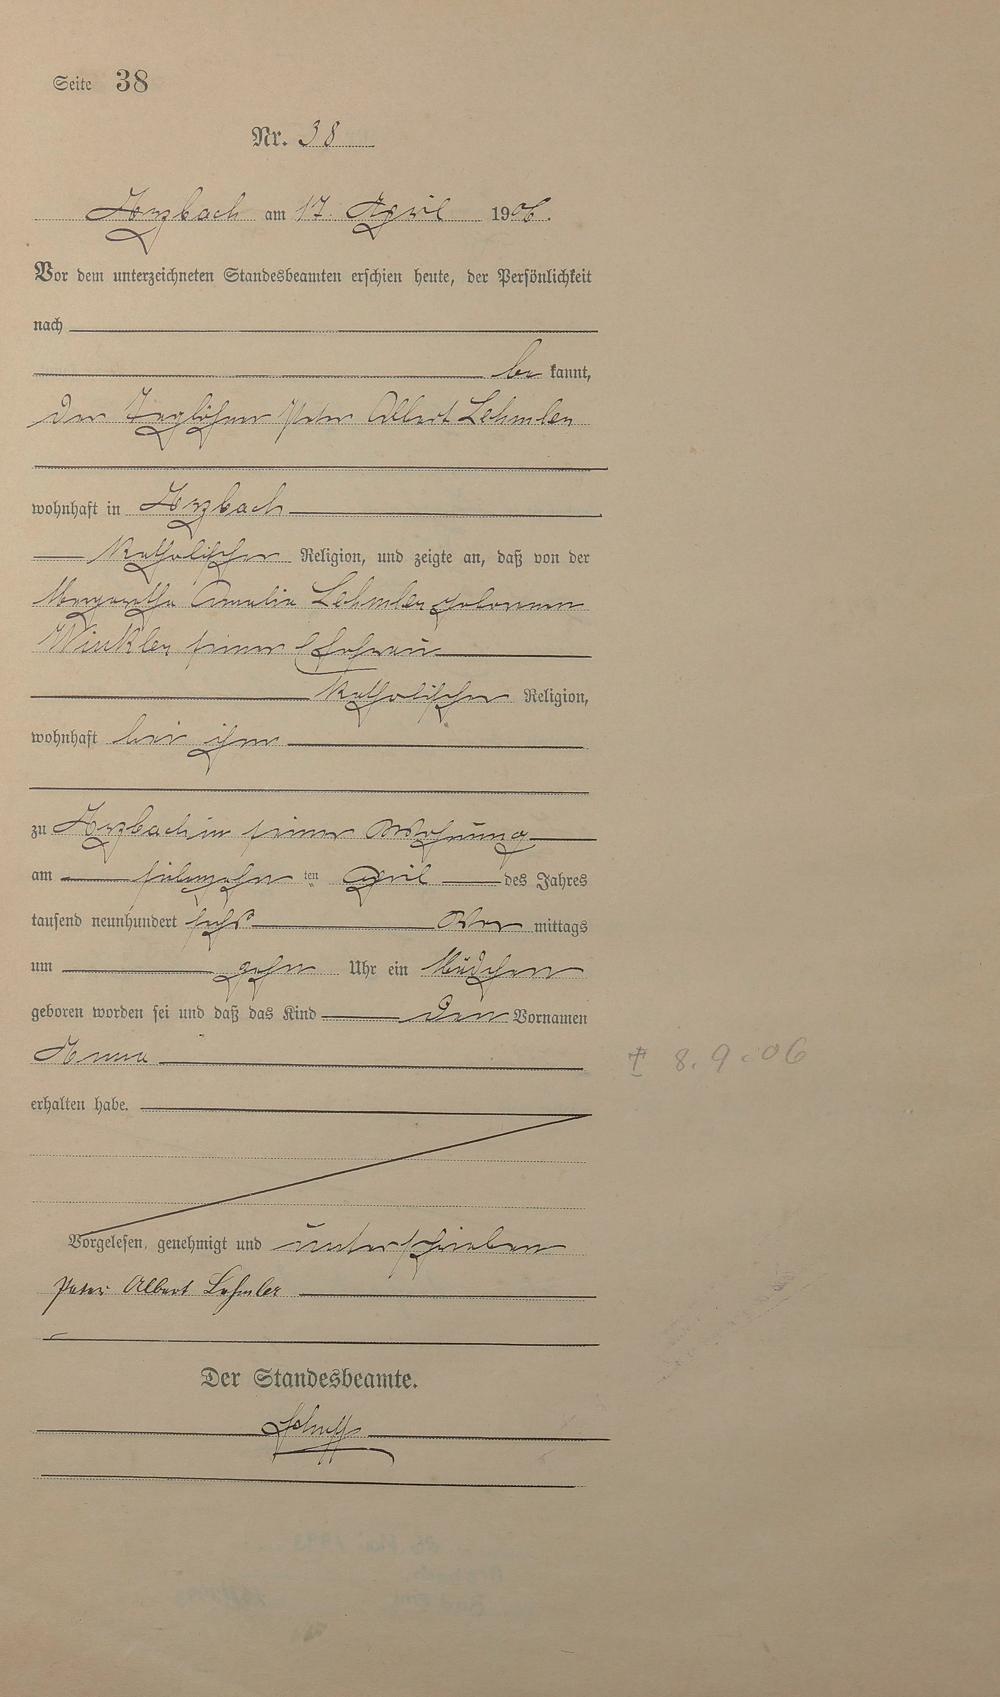 Seite 38
Nr. 38
Arzbach am 17. April 1906.
Vor dem unterzeichneten Standesbeamten erschien heute, der Persönlichkeit
nach
be kannt,
der Taglöhner Peter Albert Lehmler
wohnhaft in Arzbach
katholischer Religion, und zeigte an, daß von der
Margaretha Amalia Lehmler geborenen
Winkler seiner Ehefrau
katholischer Religion,
wohnhaft bei ihm
zu Arzbach in seiner Wohnung
am siebenzehn ten April des Jahres
tausend neunhundert sechs Vor mittags
um zehn Uhr ein Mädchen
geboren worden sei und daß das Kind den Vornamen
Anna
† 8.9.06
erhalten habe.
Vorgelesen, genehmigt und unterschrieben
Peter Albert Lehmler
Der Standesbeamte.